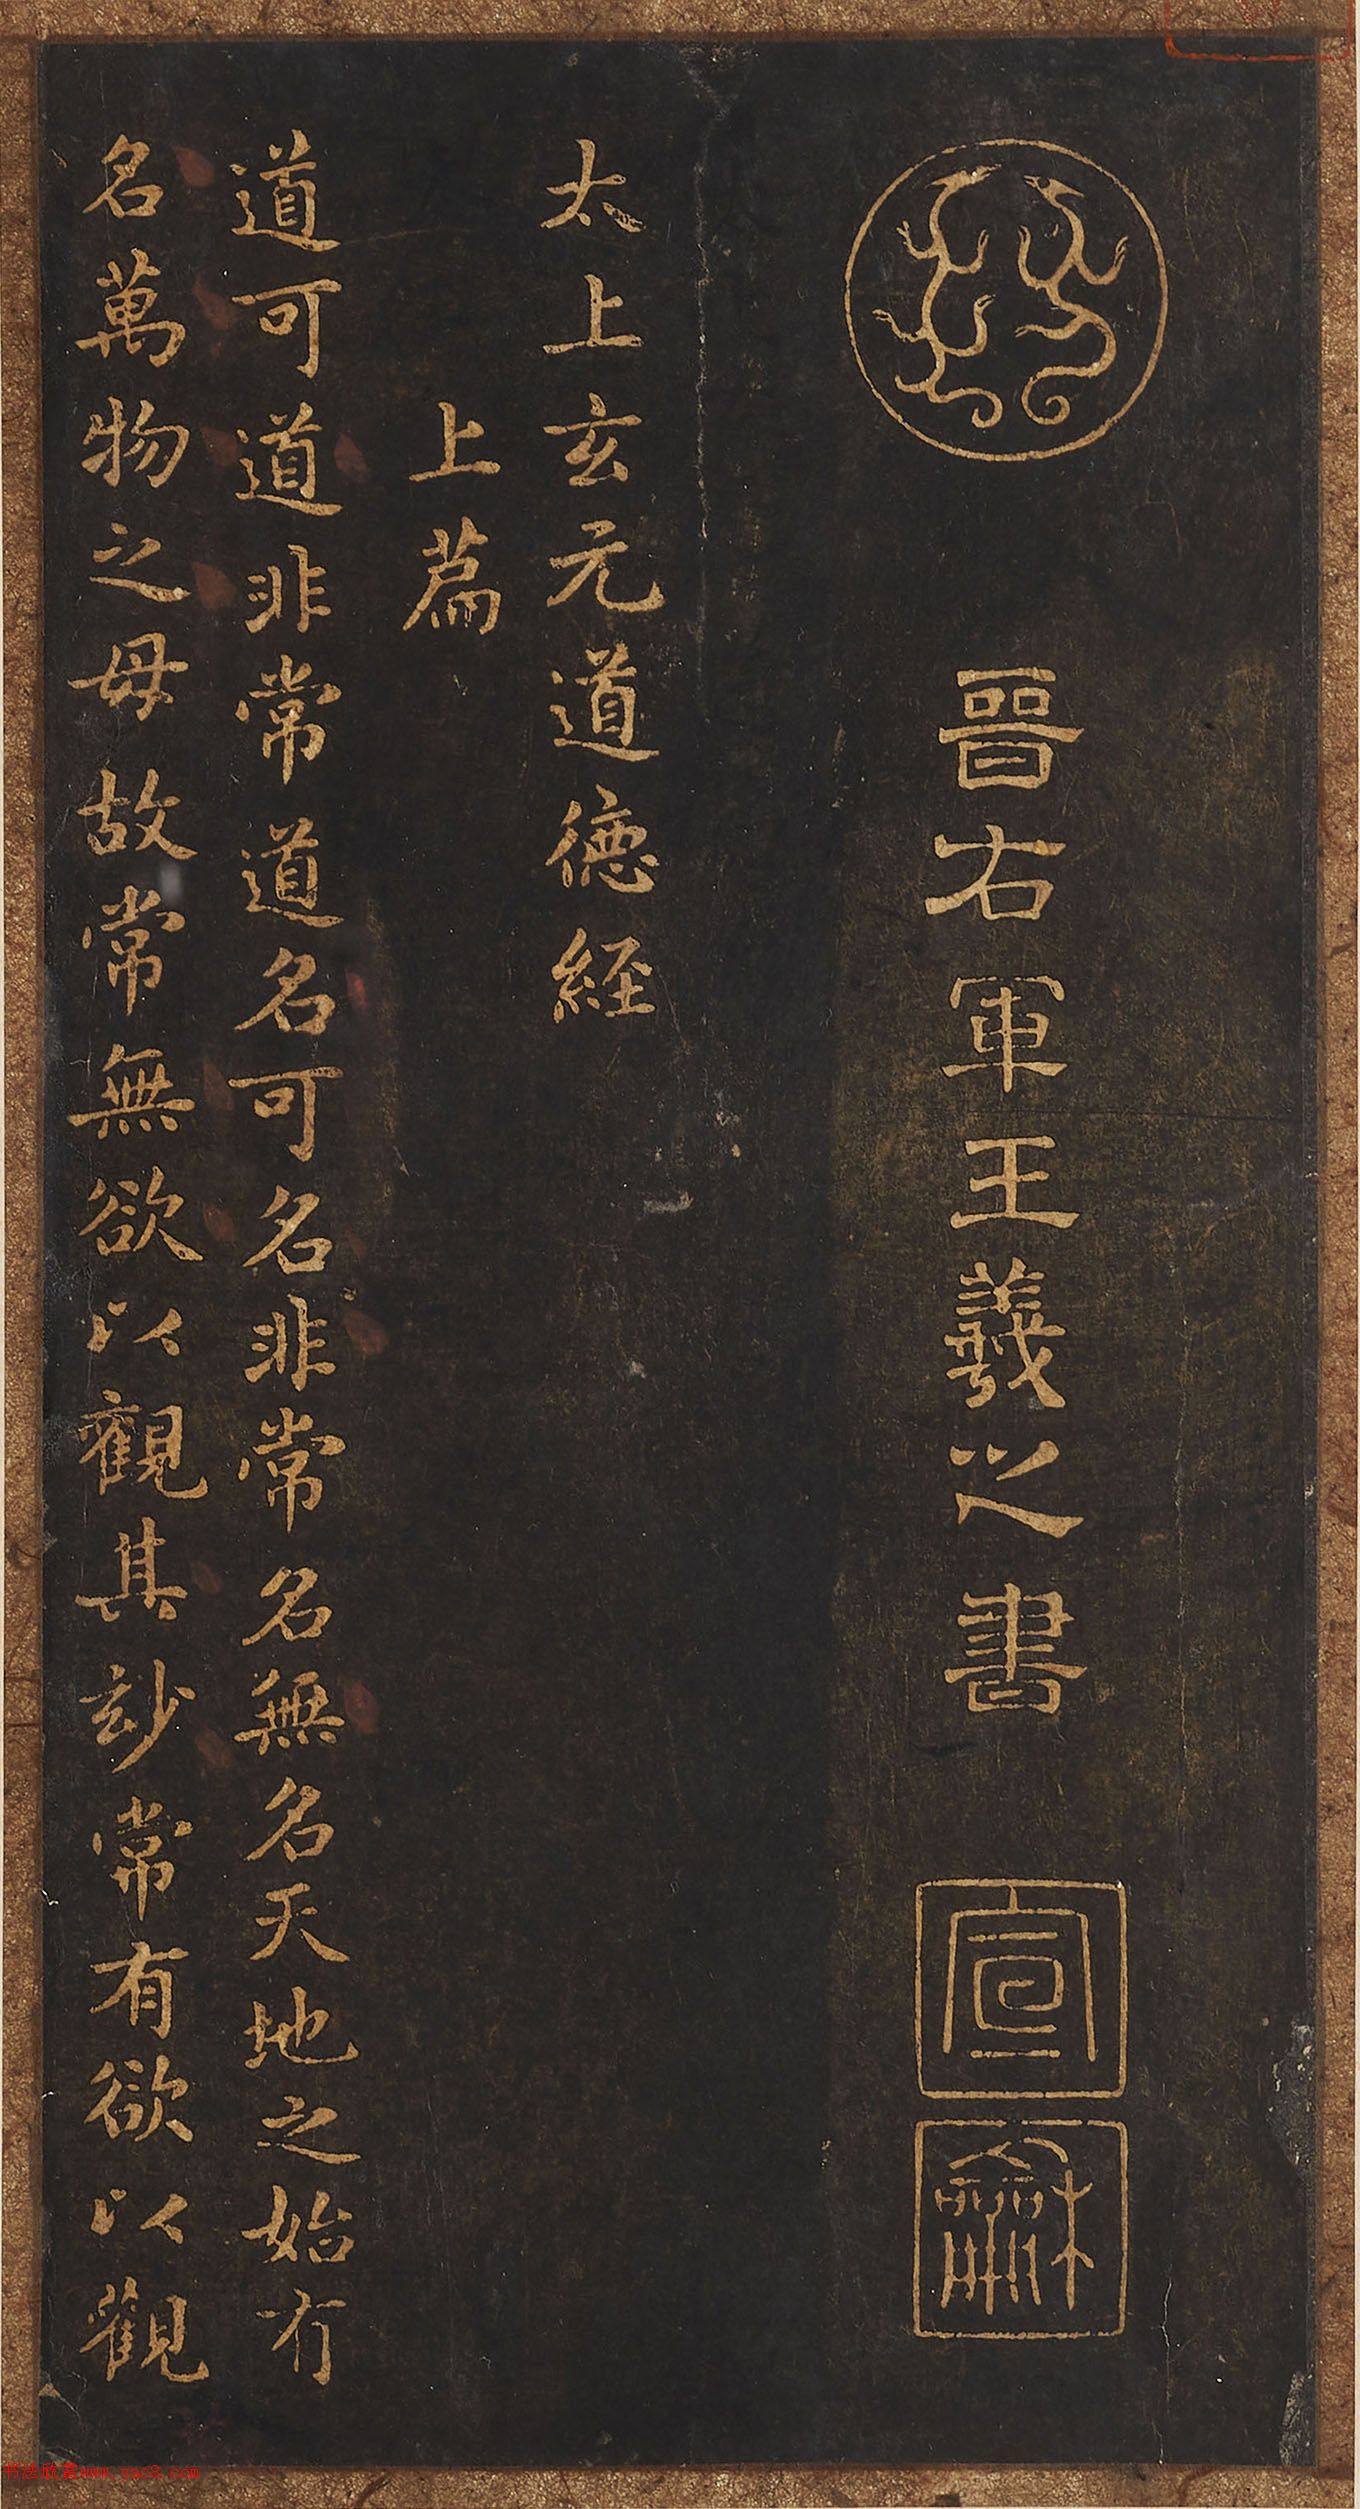 晉右軍王羲之書
宣
龢
太上玄元道德經
上篇
道可道非常道名可名非常名無名天地之始有
名萬物之母故常無欲以觀其玅常有欲以觀
书法欣赏www.yac8.com